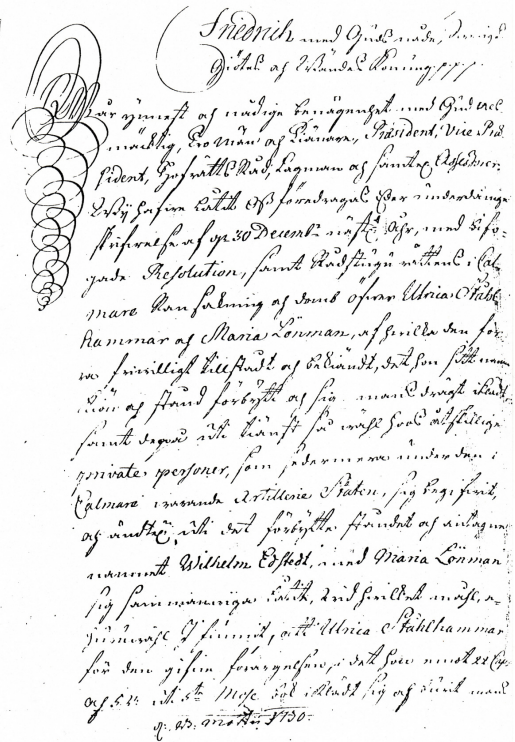 Friedrich med Guds nåde, Sveriges
Giötes och Wändes Konung p.p.p.
Wår ynnest och nådige benägenhet med Gud all-
mächtig, Tro Män och Tiänare, Præsident, Vice Præ-
sident, HofrättsRåd, Lagman och samtel. Assessorer.
Wÿ hafwe Låtit Oss föredragas Eder underdånige
skrifwelse af den 30 Decemb: näst Åhr, med bifo-
gade Resolution, samt Rådstugu rättens i Cal-
mare Ransakning och domb öfwer Ulrica Stålh
hammar och Maria Lönman, af hwilka den för
ra friwilligt tillstådt och bekiändt, det hon sitt namn
kiön och stånd förbytt och sig mans drägt iklädt,
samt uti tiänst så wähl hoos åtskillige
private personer, som sedermera under den i
Calmare warande Artillerie Staten, sig begifwit,
och ändtel. uti det förbytte ståndet och antagne
namnet Wilhelm Edstedt, med Maria Lönman
sig sammanwiga Låtit, wid hwilket måhl, e-
huruwähl I funnit, att Ulrica Stålhammar
för den gifne förargelsen, i det hon emot 22 Cap.
och 5 v. uti 5te Mose bok iklädt sig och burit mans
d. 13. Martii 1730.